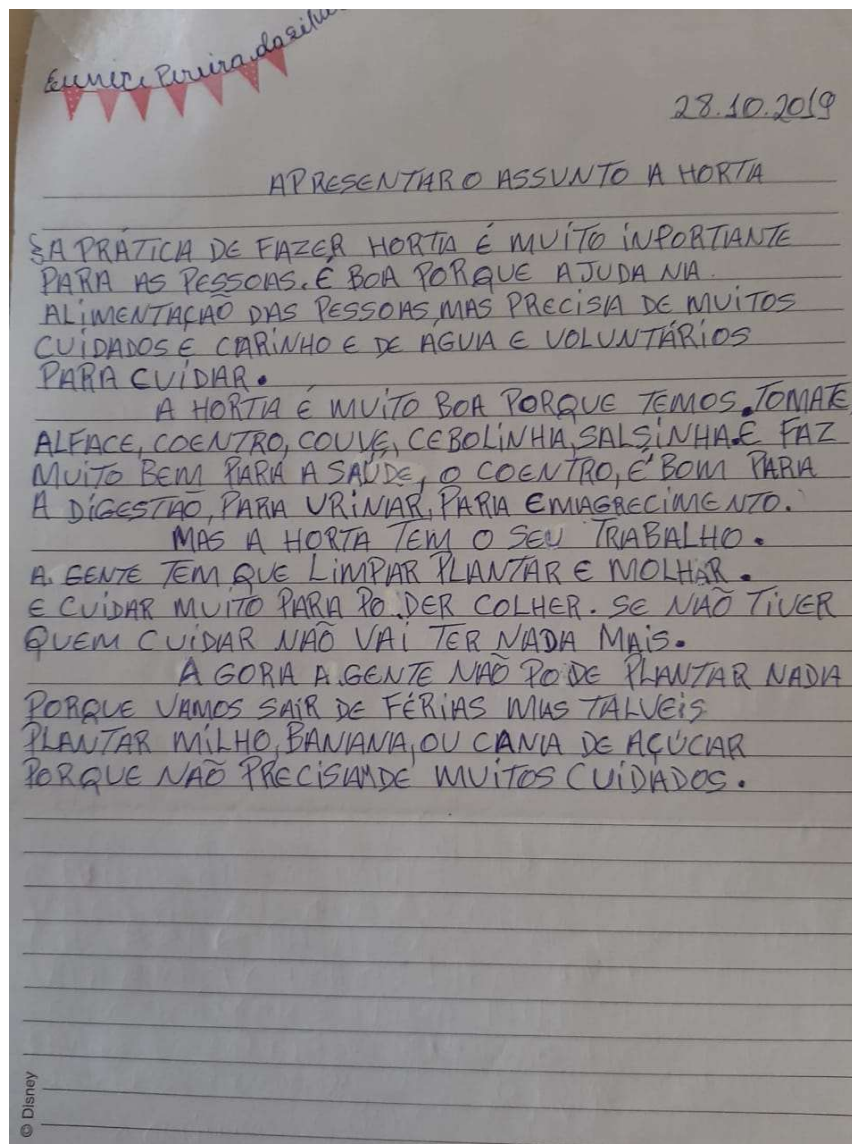 Eunice Pereira da Silva
28.10.2019
APRESENTAR O ASSUNTO A HORTA
A PRÁTICA DE FAZER HORTA É MUITO INPORTANTE
PARA AS PESSOAS. É BOA PORQUE AJUDA NA
ALIMENTAÇÃO DAS PESSOAS, MAS PRECISA DE MUITOS
CUIDADOS E CARINHO E DE ÁGUA E VOLUNTÁRIOS
PARA CUIDAR.
A HORTA É MUITO BOA PORQUE TEMOS. TOMATE,
ALFACE, COENTRO, COUVE, CEBOLINHA, SALSINHA. E FAZ
MUITO BEM PARA A SAÚDE, O COENTRO, É BOM PARA
A DIGESTÃO, PARA URINAR, PARA EMAGRECIMENTO.
MAS A HORTA TEM O SEU TRABALHO.
A GENTE TEM QUE LIMPAR PLANTAR E MOLHAR.
E CUIDAR MUITO PARA PO DER COLHER. SE NÃO TIVER
QUEM CUIDAR NÃO VAI TER NADA MAIS.
AGORA A GENTE NÃO PODE PLANTAR NADA
PORQUE VAMOS SAIR DE FÉRIAS MAS TALVEIS
PLANTAR MILHO, BANANA, OU CANA DE AÇÚCAR
PORQUE NÃO PRECISAM DE MUITOS CUIDADOS.
© Disney